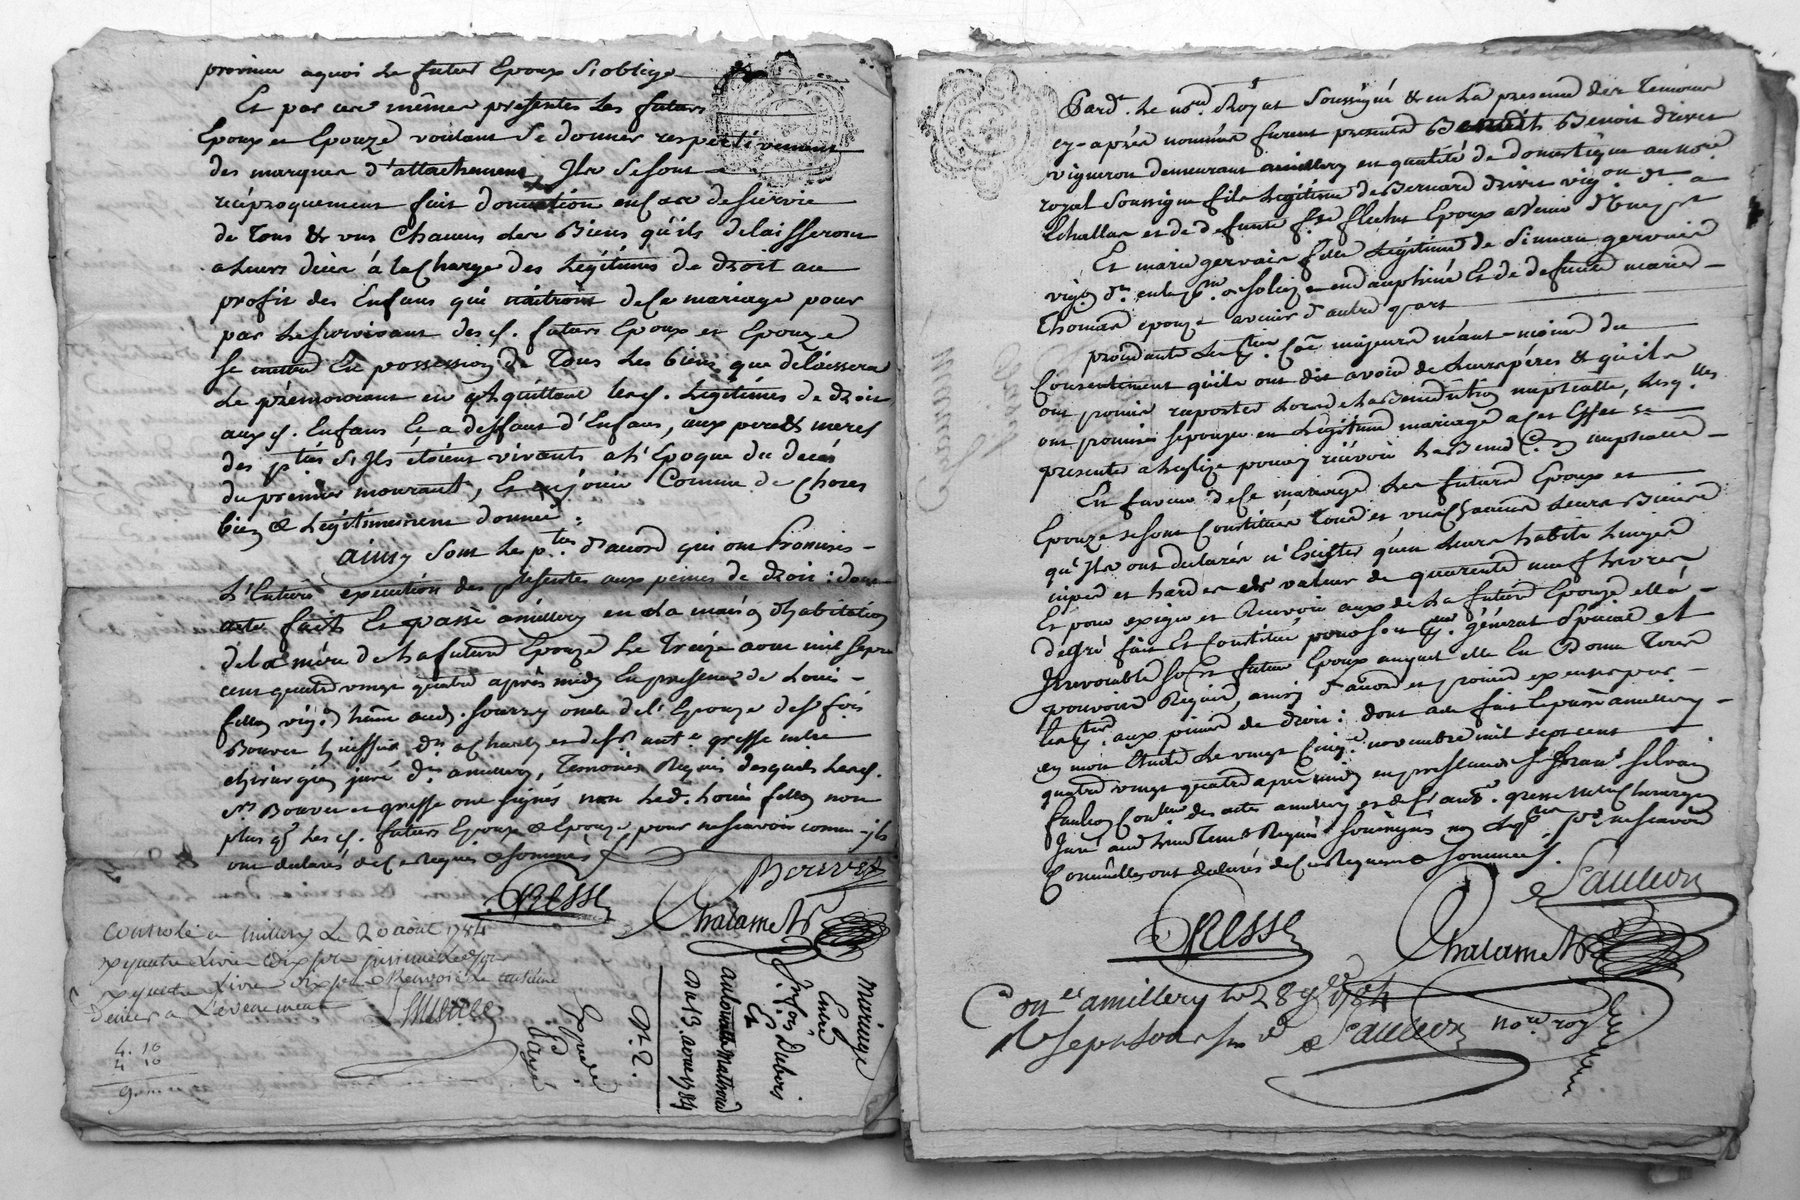 province aquoi Le futur Epoux S'oblige
Et par ces mêmes presentes Les futurs
Epoux et Epouze voulant Se donner respectivement
des marques d'attachement, Ils Se sont
réciproquement fait donnation en cas de survie
de Tous & uns Chacuns Les Biens qu'ils delaisseront
a Leurs décès à la Charge des Légitimes de Droit au
profit des Enfans qui naîtront de ce mariage pour
par Le survivant desd. futurs Epoux et Epouze
se mettre En possession de Tous Les biens que délaissera
Le prémourant en acquittant lesd. Légitimes de Droit
auxd. Enfans Et a deffaut d'Enfans, aux peres & meres
des pties S'Ils étoient vivants a L'Epoque du decès
du premier mourant, Et en jouir Comme de Choses
bien & Légitimement données.
ainsy sont Les pties d'accord qui ont Promis
L'Entiere execution des présentes aux peines de Droit: dont
acte fait Et passé a millery en La maison d'habitation
de La mère de La future Epouze Le Treize aout mil sept
cent quatre vingt quatre après midy En presence de Louis
fillon vig. oncle de L'Epouze de Sr fois
Bouver huissier Dt a Charly et de Sr ant.e gresse mtre
chirurgien juré Dt a millery, Temoins Requis desquels Lesd.
Srs Bouver et gresse ont signés non Led. Louis fillon non
plus q. Lesd. futurs Epoux & Epouze pour ne scavoir comme ils
ont declarés de ce Requis & sommés
Bouver
GRESSE
Chalamel
Controlé a millery Le 20 août 1784
Dt quatre Livres dix sols
quatre Livres dix sols
Deniers a L'evenement
4. 10
4 10
9
Mariage
Entre
Et
Du 13. aoust 1784
N. 2.
Expediée
Payé
Pardt Le nore Royal Soussigné & en La presence des Temoins
cy-après nommés furent presents Benoit Drivet
vigneron demeurant a millery en qualité de domestique au nore
royal Soussigné fils Légitime de Bernard drivet vigon Dt a
Echallas et de defunte Epoux avenir d'une pt
Et marie gervais fille Légitime de Simeon gervais
vign Dt en la psse de Solaize en dauphiné Et de defunte marie
Thomas epouze avenir d'autre part
procedante Lesd. pties Comme majeurs néant-moins du
Consentement qu'ils ont dit avoir de Leurs pères & qu'ils
ont promis raporter Lors de La Benediction nuptialle, Lesqlles
ont promis s'epouzer en Légitime mariage a cet Effet se
presenter a L'eglize pour y recevoir La Bened.on nuptialle
En faveur de ce mariage Les futurs Epoux et
Epouze se sont Constitués Tous et uns Chacuns Leurs Biens
qu'Ils ont declarés n'Exister qu'en Leurs habits Linges
nipes et hardes de valeur de quarente neuf Livres
Et pour exiger et Recevoir ceux de La future Epouze elle a
de gré fait Et Constitué pour son pr. général Special et
Irrevocable Sond. futur Epoux auquel elle En Donne Tout
pouvoir Requis, ainsy d'accord et promis executer par
Lesd. pties aux peines de Droit: dont acte fait Et passé a millery
en mon Etude Le vingt Cinq novembre mil sept cent
quatre vingt quatre après midy en presence de Sr franc.s silvain
faulcon Con.leur des actes a millery et de Sr ant.e gresse Me Chirurgien
Juré aud. Lieu Temoins Requis soussignés non Lesd. pties pour ne scavoir
Comme elles ont declarés de ce Requises & sommées.
GRESSE
Chalamel
nore roy
Conlé a millery Le 28 9bre 1784
R sept sols six d